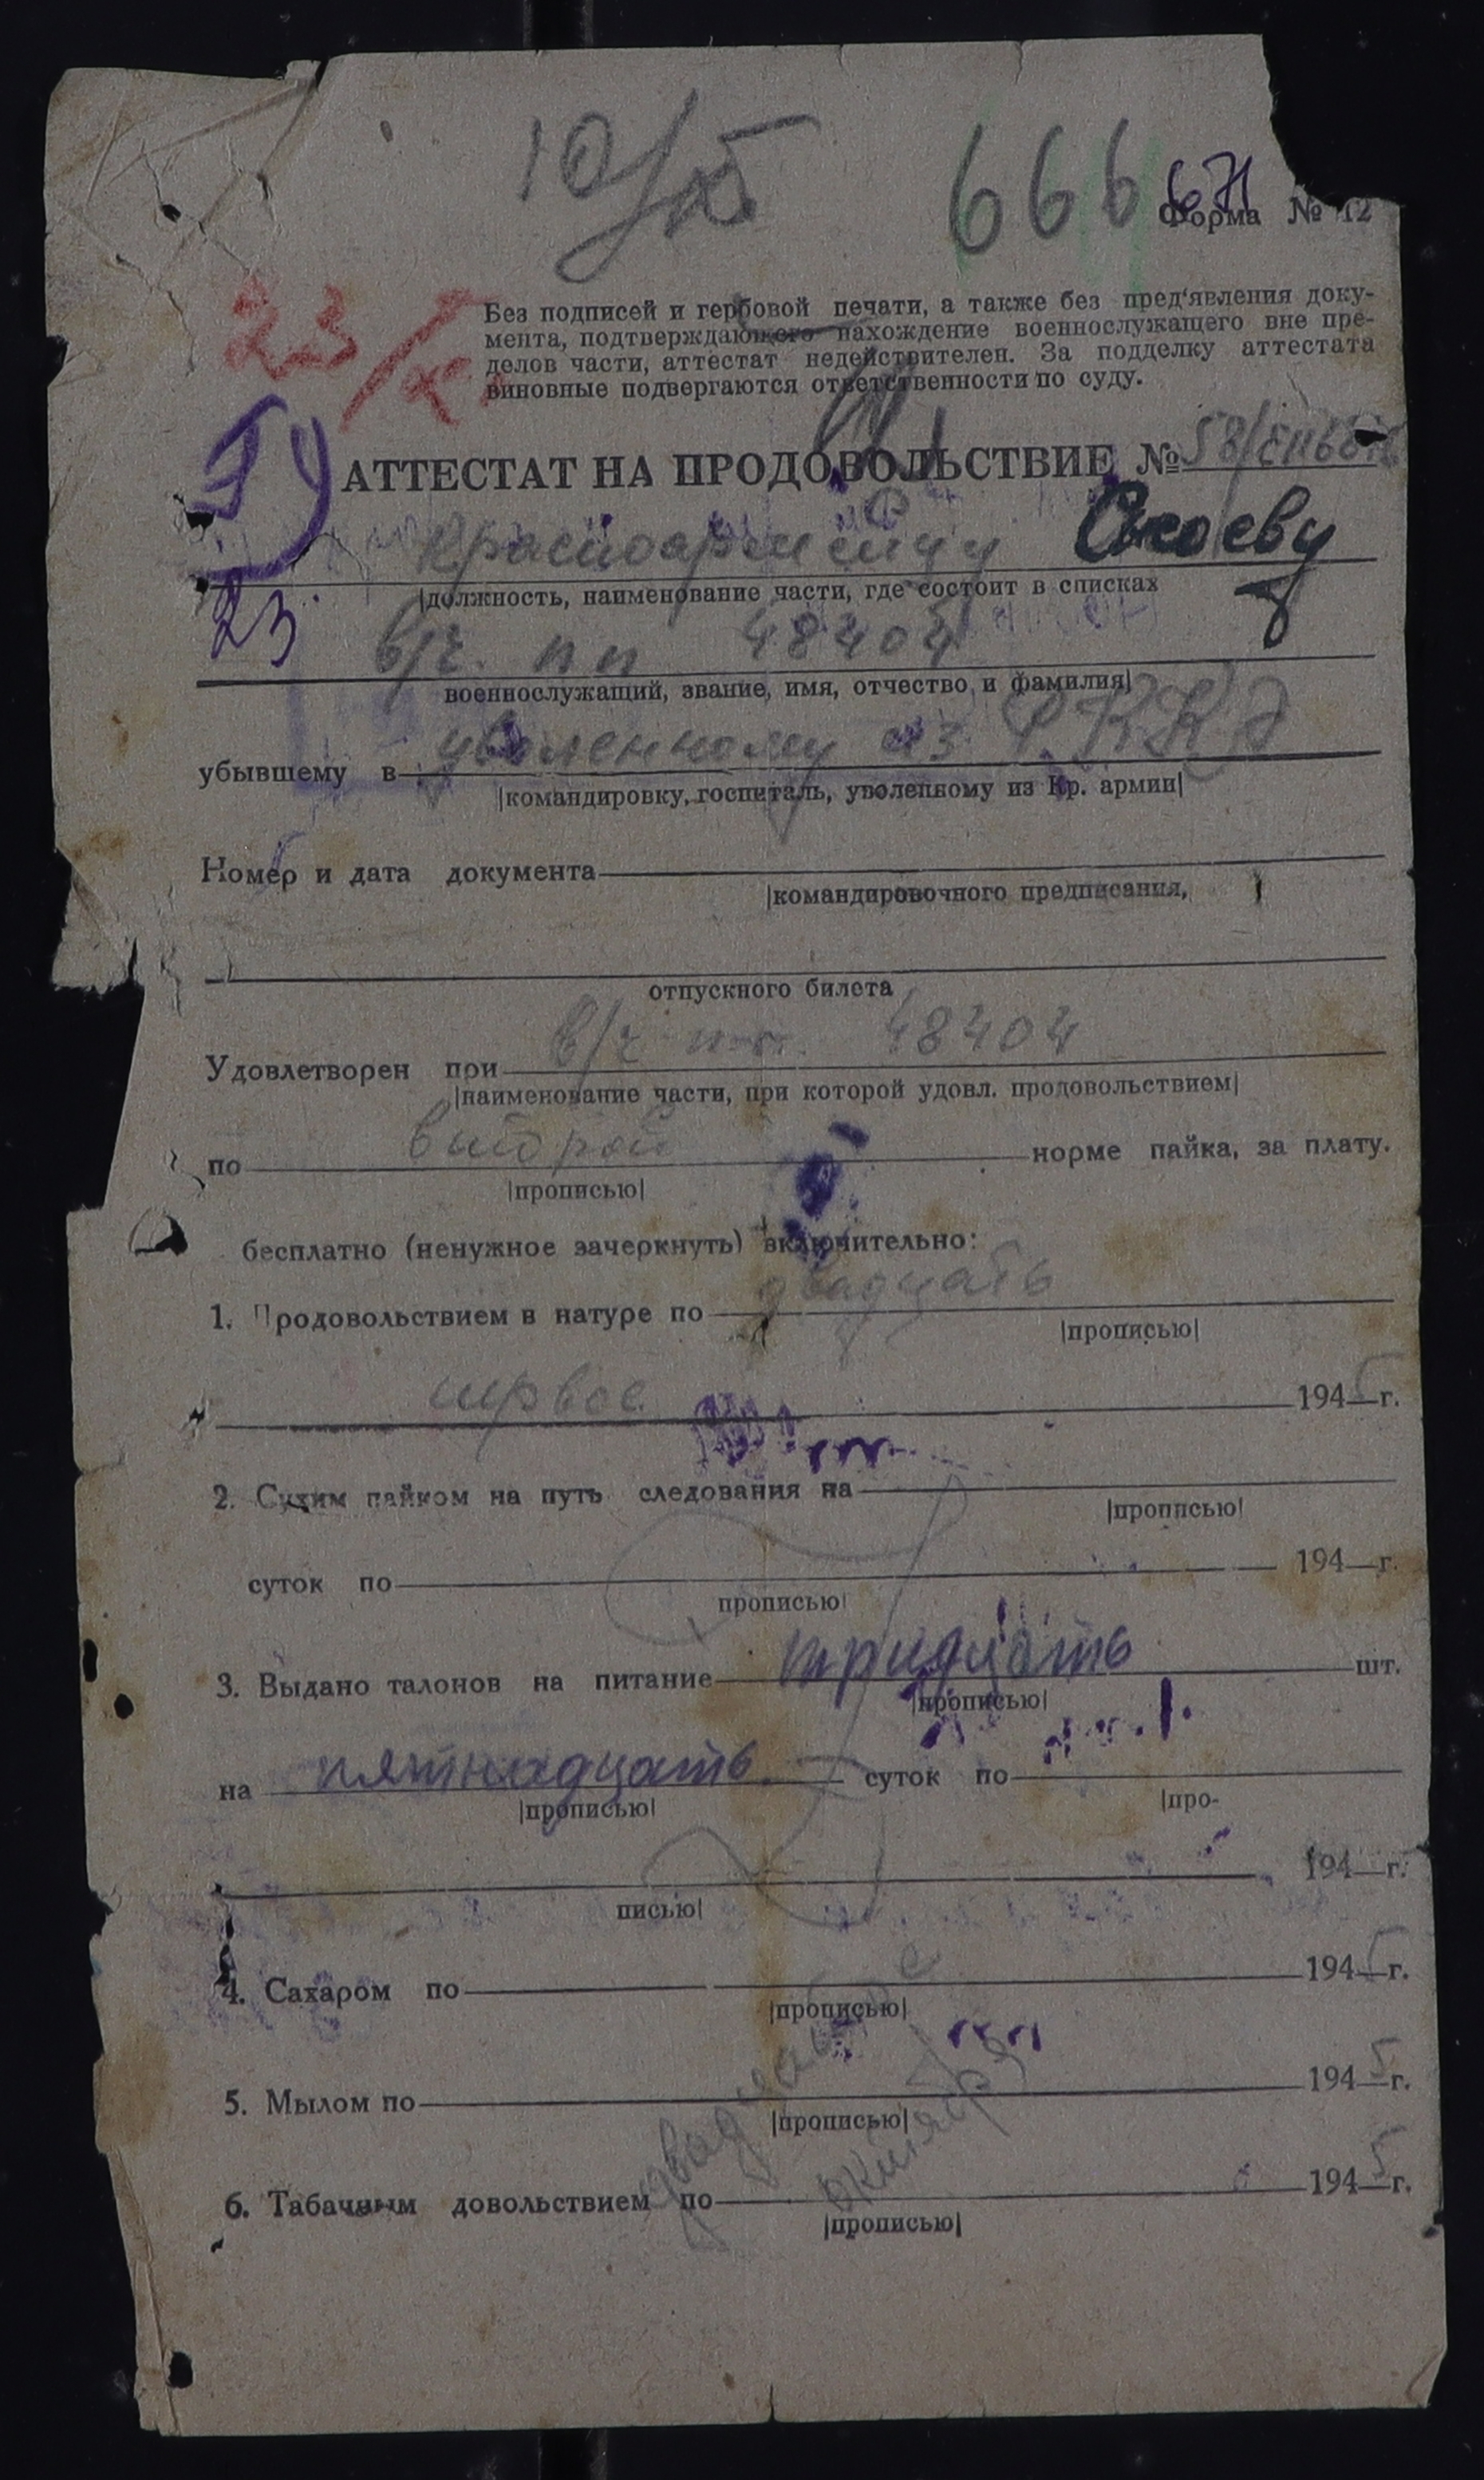 10/X
666 671
Форма № 12
23/X
Без подписей и гербовой печати, а также без пред'явления доку-
мента, подтверждающего нахождение военнослужащего вне пре-
делов части, аттестат недействителен. За подделку аттестата
виновные подвергаются ответственности по суду.
АТТЕСТАТ НА ПРОДОВОЛЬСТВИЕ №
Красноармейцу
|должность, наименование части, где состоит в списках
23
в/ч. пп 48404
военнослужащий, звание, имя, отчество и фамилия|
убывшему в уволенному из РККА
|командировку, госпиталь, уволенному из Кр. армии|
Номер и дата документа
|командировочного предписания,
отпускного билета
Удовлетворен при в/ч п.п. 48404
|наименование части, при которой удовл. продовольствием|
по второй норме пайка, за плату.
|прописью|
бесплатно (ненужное зачеркнуть) включительно:
1. Продовольствием в натуре по двадцать
|прописью|
первое 1945 г.
2. Сухим пайком на путь следования на
|прописью|
суток по 194 г.
прописью|
3. Выдано талонов на питание тридцать шт.
|прописью|
на пятнадцать суток по
|прописью| |про-
194 г.
писью|
4. Сахаром по 1945 г.
|прописью|
5. Мылом по 1945 г.
|прописью|
6. Табачным довольствием по 1945 г.
|прописью|
октября